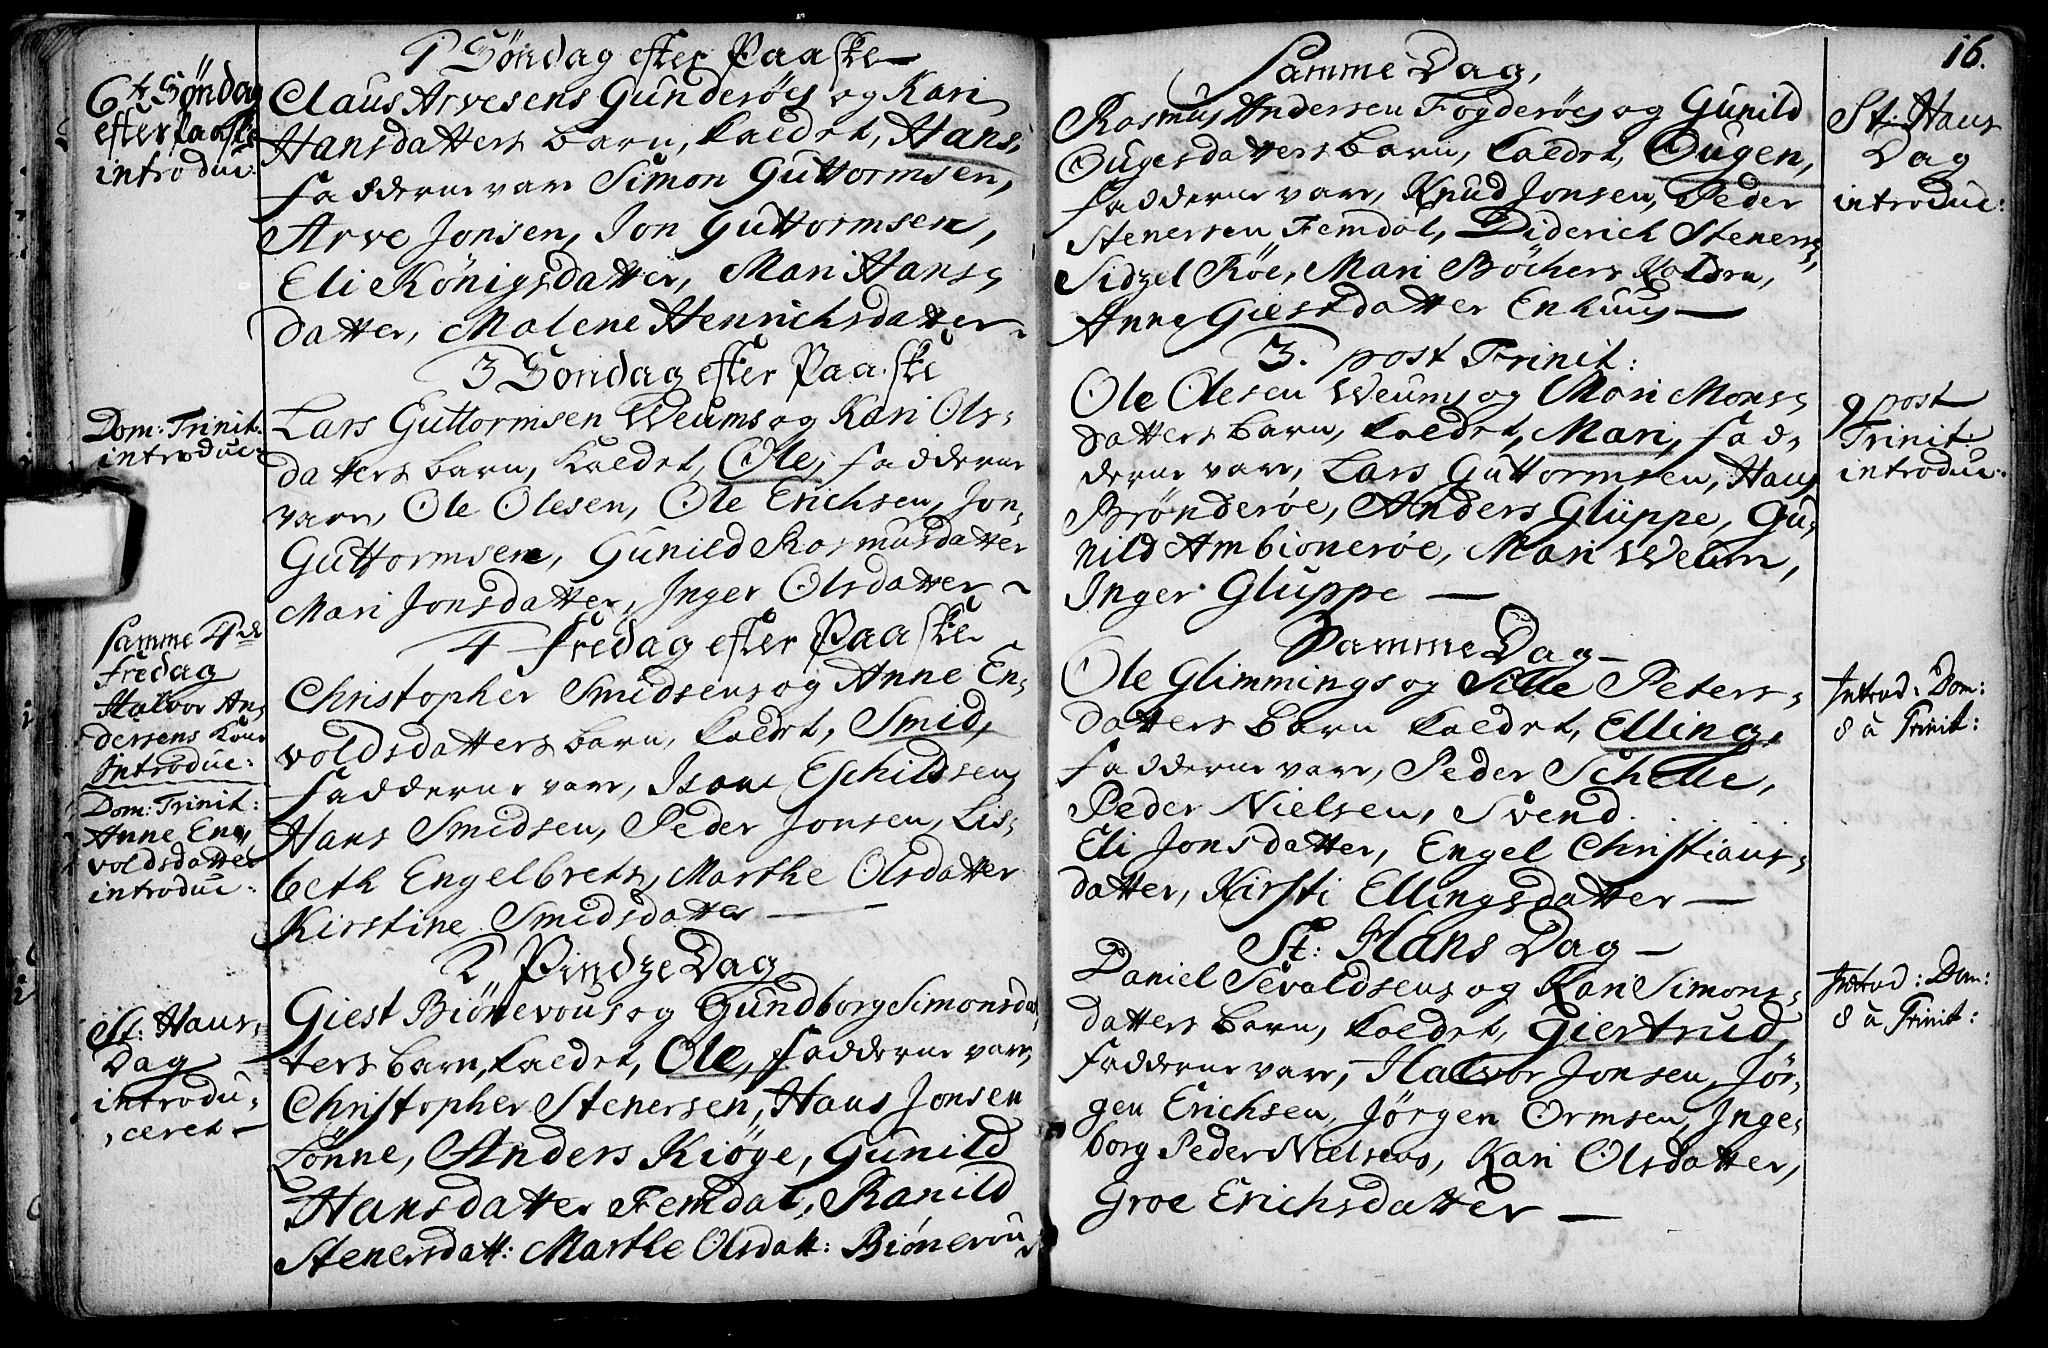 1 Söndag efter Paaske
6te Söndag
efter Paaske
introduc:
Claus Arvesens Gunderöes og Kari
Hansdatters barn, kaldet, Hans,
fadderne vare Simon Guttormsen,
Arve Jonsen, Jon Guttormsen,
Eli Königsdatter, Mari Hans-
datter, Malene Henrichsdatter
3 Söndag efter Paaske
Dom: Trinit:
introduc:
Lars Guttormsen Weums og Kari Ols-
datters barn, kaldet, Ole, fadderne
vare, Ole Olesen, Ole Erichsen, Jon
Guttormsen, Gunild Rasmusdatter
Mari Jonsdatter, Inger Olsdatter
4 Fredag efter Paaske
Samme 4de
Fredag
Halvor An-
dersens Kone
Introduc:
Dom: Trinit:
Anne En-
voldsdatter
introduc:
Christopher Smidsens og Anne En-
voldsdatters barn, kaldet, Smid,
fadderne vare, Isaac Eschildsen,
Hans Smidsen, Peder Jonsen, Lis-
beth Engelbrets, Marthe Olsdatter
Kirstine Smidsdatter
2 Pindze Dag
St: Hans
Dag
introdu-
ceret
Giest Biönevous og Gundborg Simonsdat-
ters barn, kaldet, Ole, fadderne vare,
Christopher Stenersen, Hans Jonsen
Lönne, Anders Kiöge, Gunild
Hansdatter Femdal, Ranild
Stenersdatt: Marthe Olsdatt: Biönevou
16.
Samme Dag,
Rasmus Andersen Fogderöes og Gunild
Ougesdatters barn, kaldet, Ougen,
fadderne vare, Knud Jonsen, Peder
Stenersen Femdal, Diderich Steners:,
Sidzel Röe, Mari Böchers Kaldra,
Anne Giestdatter Enhuus
St: Hans
Dag
introduc:
3. post Trinit:
Ole Olesen Weums og Mari Mons-
datters barn, kaldet, Mari, fad-
derne vare, Lars Guttormsen, Hans
Brönderöe, Anders Gluppe, Gu-
nild Ambioneröe, Mari Weum,
Inger Gluppe
9 post
Trinit:
introduc:
Samme Dag
Ole Glimmings og Sille Peters-
datters barn kaldet, Elling,
fadderne vare, Peder Schelle,
Peder Nielsen, Svend . . . . .
Eli Jonsdatter, Engel Christians-
datter, Kirsti Ellingsdatter
Introd: Dom:
8 a Trinit:
St: Hans Dag
Daniel Sevaldsens og Kari Simons-
datters barn, kaldet, Giertrud,
fadderne vare, Halvor Jonsen, Jör-
gen Erichsen, Jörgen Ormsen, Inge-
borg Peder Nielsens, Kari Olsdatter,
Groe Erichsdatter
Introd: Dom:
8 a Trinit: